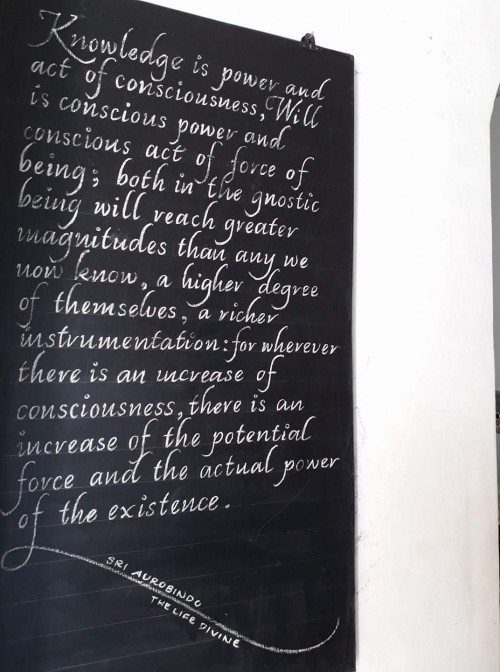 Knowledge is power and
act of consciousness, Will
is conscious power and
conscious act of force of
being; both in the gnostic
being will reach greater
magnitudes than any we
now know, a higher degree
of themselves, a richer
instrumentation: for wherever
there is an increase of
consciousness, there is an
increase of the potential
force and the actual power
of the existence.
SRI AUROBINDO
THE LIFE DIVINE